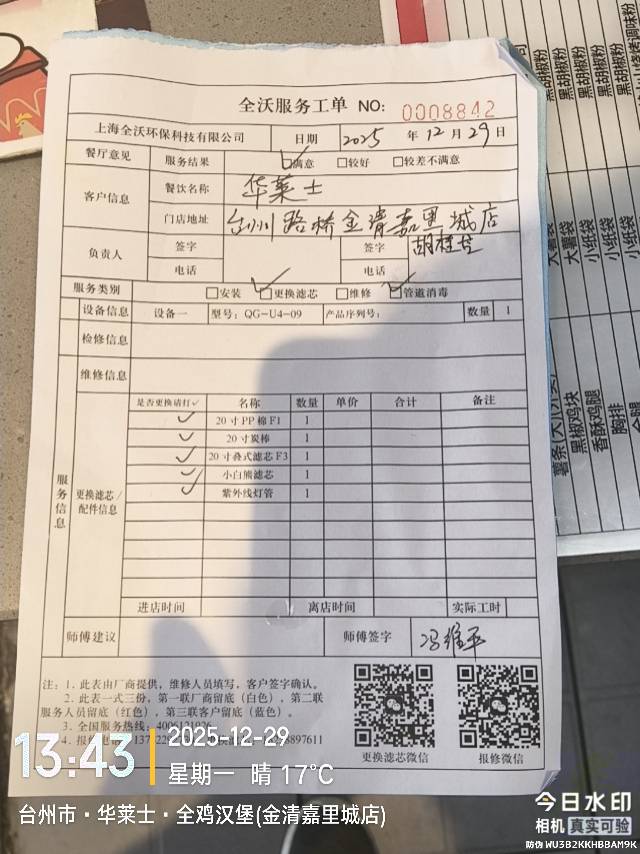 全沃服务工单 NO: 0008842
上海全沃环保科技有限公司 日期 2025 年 12 月 29 日
餐厅意见 服务结果 ☑满意 □较好 □较差不满意
客户信息 餐饮名称 华莱士
门店地址 台州路桥金清嘉里城店
负责人 签字 签字
电话 电话
服务类别 □安装 ☑更换滤芯 □维修 ☑管道消毒
设备信息 设备一 型号: QG-U4-09 产品序列号: 数量 1
检修信息
维修信息
服务信息
更换滤芯/配件信息
是否更换请打✓ 名称 数量 单价 合计 备注
✓ 20寸PP棉F1 1
✓ 20寸炭棒 1
✓ 20寸叠式滤芯F3 1
✓ 小白熊滤芯 1
✓ 紫外线灯管 1
进店时间 离店时间 实际工时
师傅建议 师傅签字 冯维平
注: 1. 此表由厂商提供, 维修人员填写, 客户签字确认。
2. 此表一式三份, 第一联厂商留底(白色), 第二联
服务人员留底(红色), 第三联客户留底(蓝色)。
3. 全国服务热线:
4. 报修
更换滤芯微信 报修微信
13:43
2025-12-29
星期一 晴 17°C
台州市·华莱士·全鸡汉堡(金清嘉里城店)
今日水印
相机 真实可验
防伪 WU3B2KKHBBAM9K
黑胡椒粉
黑胡椒粉
黑胡椒粉
黑胡椒粉
大薯袋
大薯袋
小纸袋
小纸袋
小纸袋
黑椒鸡块
香酥鸡腿
胸排